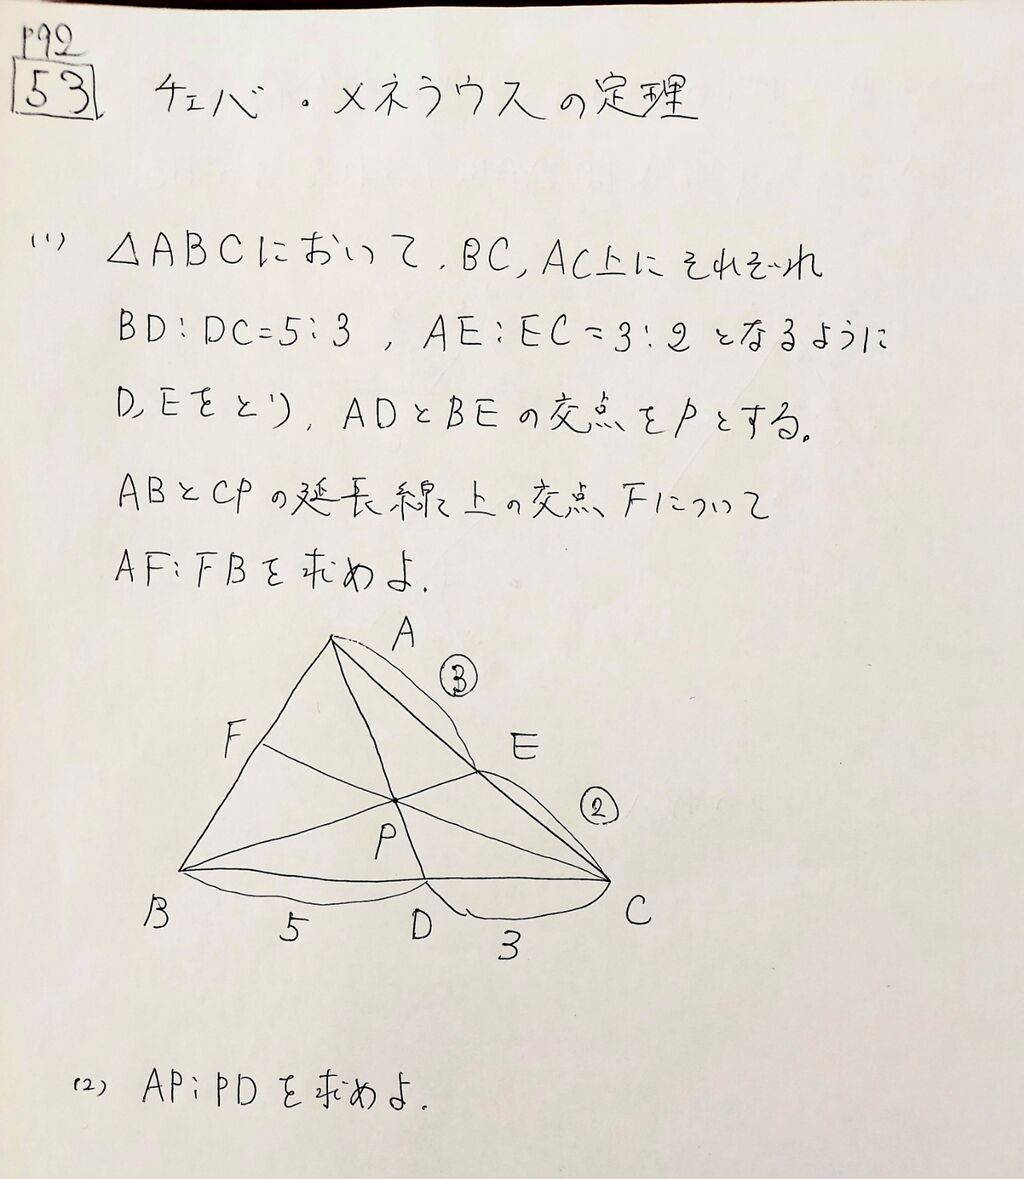 p92
53 チェバ・メネラウスの定理
(1) △ABCにおいて、BC, AC上にそれぞれ
BD:DC=5:3, AE:EC=3:2となるように
D, Eをとり, ADとBEの交点をPとする。
ABとCPの延長線上の交点Fについて
AF:FBを求めよ.
A
③
F
E
②
P
B
5
D
3
C
(2) AP:PDを求めよ.